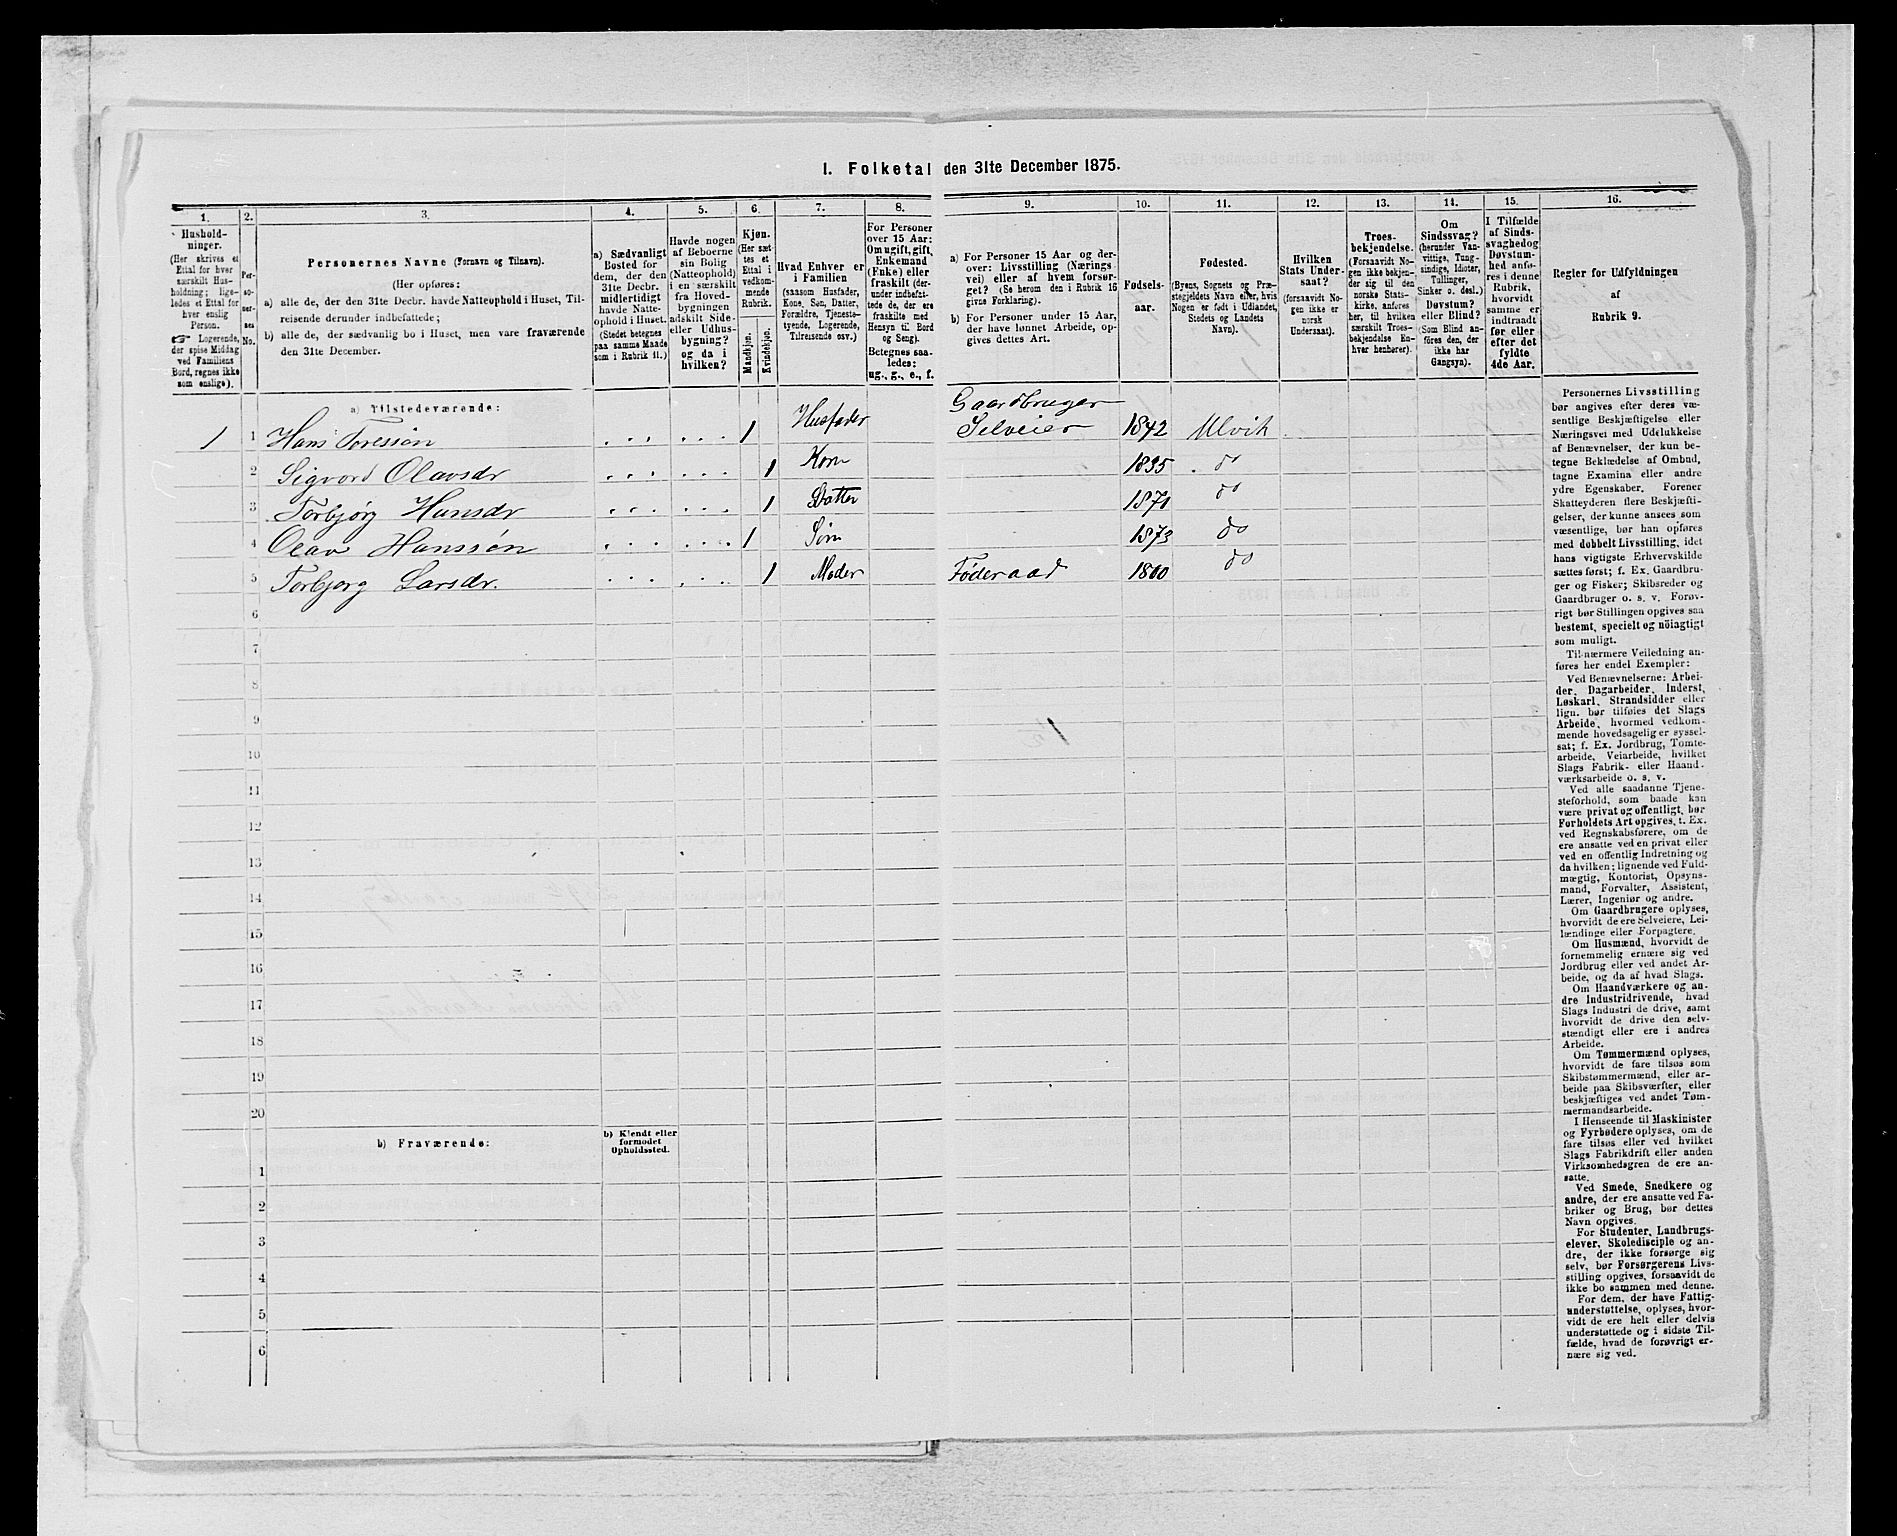 I. Folketal den 31te December 1875.
1.
2.
3.
4.
5.
6.
7.
8.
9.
10.
11.
12.
13.
14.
15.
16.
Hushold-
ninger.
(Her skrives et
Ettal for hver
særskilt Hus-
holdning; lige-
ledes et Ettal for
hver enslig
Person.
☞ Logerende,
der spise Middag
ved Familiens
Bord, regnes ikke
som enslige).
Per-
so-
ner-
nes
No.
Personernes Navne (Fornavn og Tilnavn).
(Her opføres:
a) alle de, der den 31te Decbr. havde Natteophold i Huset, Til-
reisende derunder indbefattede;
b) alle de, der sædvanlig bo i Huset, men vare fraværende
den 31te December.
a) Sædvanligt
Bosted for
dem, der den
31te Decbr.
midlertidigt
havde Natte-
ophold i Huset.
(Stedet betegnes
paa samme Maade
som i Rubrik 11.)
Havde nogen
af Beboerne
sin Bolig
(Natteophold)
i en særskilt
fra Hoved-
bygningen
adskilt Side-
eller Udhus-
bygning?
og da i
hvilken?
Kjøn.
(Her sæt-
tes et
Ettal i
vedkom-
mende
Rubrik.
Mandkjøn.
Kvindekjøn.
Hvad Enhver er
i Familien
(saasom Husfader,
Kone, Søn, Datter,
Forældre, Tjeneste-
tyende, Logerende,
Tilreisende osv.)
For Personer
over 15 Aar:
Om ugift, gift,
Enkemand
(Enke) eller
fraskilt (der-
under indbefat-
tede de, der ere
fraskilte med
Hensyn til Bord
og Seng).
Betegnes saa-
ledes:
ug., g., e., f.
a) For Personer 15 Aar og der-
over: Livsstilling (Nærings-
vei) eller af hvem forsør-
get? (Se herom den i Rubrik 16
givne Forklaring).
b) For Personer under 15 Aar,
der have lønnet Arbeide, op-
gives dettes Art.
Fødsels-
aar.
Fødested.
(Byens, Sognets og Præ-
stegjeldets Navn eller, hvis
Nogen er født i Udlandet,
Stedets og Landets
Navn).
Hvilken
Stats Under-
saat?
(forsaavidt No-
gen ikke er
norsk
Undersaat).
Troes-
bekjendelse.
(Forsaavidt No-
gen ikke bekjen-
der sig til den
norske Stats-
kirke, anføres
her, til hvilken
særskilt Troes-
bekjendelse En-
hver henhører).
Om
Sindssvag?
(herunder Van-
vittige, Tung-
sindige, Idioter,
Tullinger,
Sinker o. desl.)
Døvstum?
eller Blind?
(Som Blind an-
føres den, der
ikke har
Gangsyn).
I Tilfælde
af Sinds-
svaghed og
Døvstum-
hed anfø-
res i denne
Rubrik,
hvorvidt
samme er
indtraadt
før eller
efter det
fyldte
4de Aar.
Regler for Udfyldningen
af
Rubrik 9.
a) Tilstedeværende:
1 1 Hans Toressön 1 Husfader Gaardbruger Selveier 1842 Ulvik
2 Sigvord Olavsdr 1 Kone 1835 do
3 Torbjørg Hansdr 1 Datter 1871 do
4 Olav Hanssön 1 Søn 1873 do
5 Torbjørg Larsdr. 1 Moder Föderaad 1800 do
6
7
8
9
10
11
12
13
14
15
16
17
18
19
20
b) Fraværende:
b) Kjendt eller
formodet
Opholdssted.
1
2
3
4
5
6
Personernes Livsstilling
bør angives efter deres væ-
sentlige Beskjæftigelse eller
Næringsvei med Udelukkelse
af Benævnelser, der kun be-
tegne Beklædelse af Ombud,
tagne Examina eller andre
ydre Egenskaber. Forener
Skatteyderen flere Beskjæfti-
gelser, der kunne ansees som
væsentlige, bør han opføres
med dobbelt Livsstilling, idet
hans vigtigste Erhvervskilde
sættes først; f. Ex. Gaardbru-
ger og Fisker; Skibsreder og
Gaardbruger o. s. v. Forøv-
rigt bør Stillingen opgives saa
bestemt, specielt og nöiagtigt
som muligt.
Til nærmere Veiledning an-
føres her endel Exempler:
Ved Benævnelserne: Arbei-
der, Dagarbeider, Inderst,
Løskarl, Strandsidder eller
lign. bør tilføies det Slags
Arbeide, hvormed vedkom-
mende hovedsagelig er syssel-
sat; f. Ex. Jordbrug, Tomte-
arbeide, Veiarbeide, hvilket
Slags Fabrik- eller Haand-
værksarbeide o. s. v.
Ved alle saadanne Tjene-
steforhold, som baade kan
være privat og offentligt, bør
Forholdets Art opgives, t. Ex.
ved Regnskabsførere, om de
ere ansatte ved en privat eller
ved en offentlig Indretning og
da hvilken; lignende ved Fuld-
mægtig, Kontorist, Opsyns-
mand, Forvalter, Assistent,
Lærer, Ingeniør og andre.
Om Gaardbrugere oplyses,
hvorvidt de ere Selveiere, Lei-
lændinge eller Forpagtere.
Om Husmænd, hvorvidt de
fornemmelig ernære sig ved
Jordbrug eller ved andet Ar-
beide, og da af hvad Slags.
Om Haandværkere og an-
dre Industridrivende, hvad
Slags Industri de drive, samt
hvorvidt de drive den selv-
stændigt eller ere i andres
Arbeide.
Om Tømmermænd oplyses,
hvorvidt de fare tilsøs som
Skibstømmermænd, eller ar-
beide paa Skibsværfter, eller
beskjæftiges ved andet Tøm-
mermandsarbeide.
I Henseende til Maskinister
og Fyrbødere oplyses, om de
fare tilsøs eller ved hvilket
Slags Fabrikdrift eller anden
Virksomhedsgren de ere an-
satte.
Ved Smede, Snedkere og
andre, der ere ansatte ved Fa-
briker og Brug, bør dettes
Navn opgives.
For Studenter, Landbrugs-
elever, Skoledisciple og an-
dre, der ikke forsørge sig
selv, bør Forsørgerens Livs-
stilling opgives, forsaavidt de
ikke bo sammen med denne.
For dem, der have Fattig-
understøttelse, oplyses, hvor-
vidt de ere helt eller delvis
understøttede og i sidste Til-
fælde, hvad de forøvrigt er-
nære sig ved.